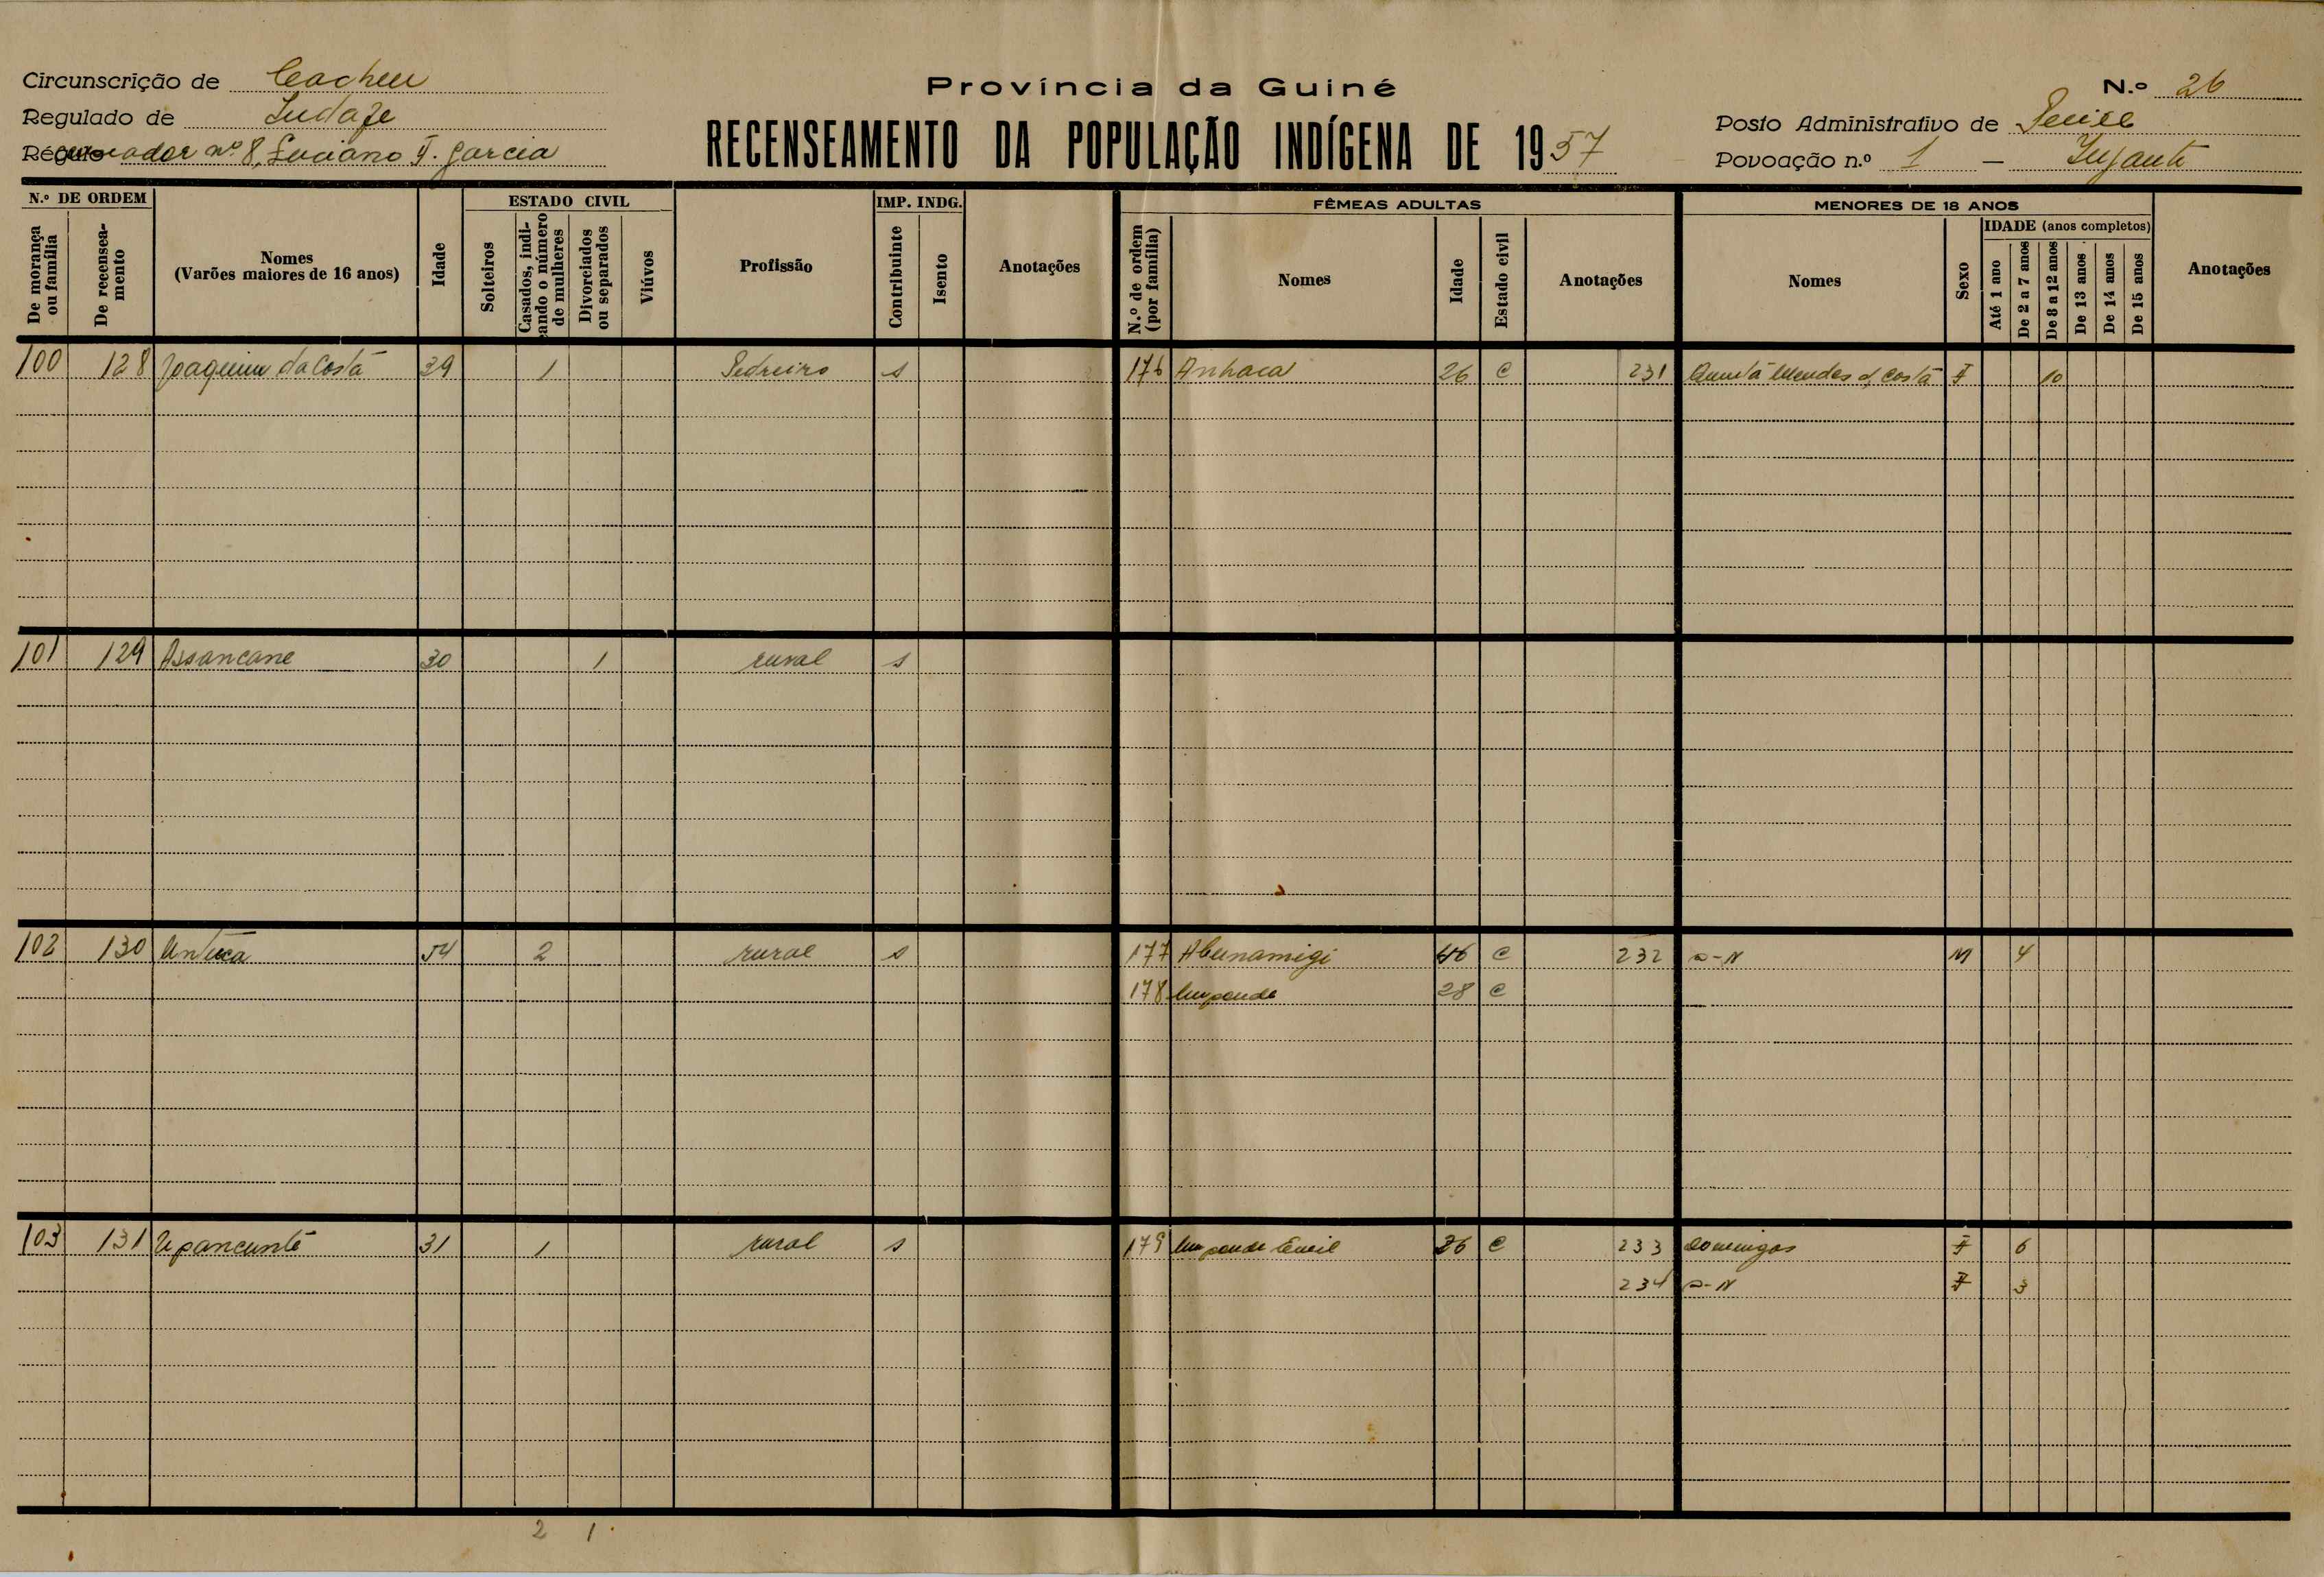 Circunscrição de Cacheu
Regulado de
Régulo nº 8, Luciano F. Garcia
Província da Guiné
RECENSEAMENTO DA POPULAÇÃO INDÍGENA DE 1957
N.º 26
Posto Administrativo de
Povoação n.º 1 —
N.º DE ORDEM
De morança ou família
De recenseamento
Nomes
(Varões maiores de 16 anos)
Idade
ESTADO CIVIL
Solteiros
Casados, indicando o número de mulheres
Divorciados ou separados
Viúvos
Profissão
IMP. INDG.
Contribuinte
Isento
Anotações
FÊMEAS ADULTAS
N.º de ordem (por família)
Nomes
Idade
Estado civil
Anotações
MENORES DE 18 ANOS
Nomes
Sexo
IDADE (anos completos)
Até 1 ano
De 2 a 7 anos
De 8 a 12 anos
De 13 anos
De 14 anos
De 15 anos
Anotações
100 128 Joaquim da Costa 39 1 Pedreiro s 176 Anhaca 26 C 231 Mendes d Costa F 10
101 129 Assancane 30 1 rural s
102 130 Antuca 54 2 rural s 177 Abunamigi 46 C 232 s-N M 4
178 Umpande 28 C
103 131 Upancunté 31 1 rural s 179 Umpande 26 C 233 Domingas F 6
234 s-N F 3
2 1